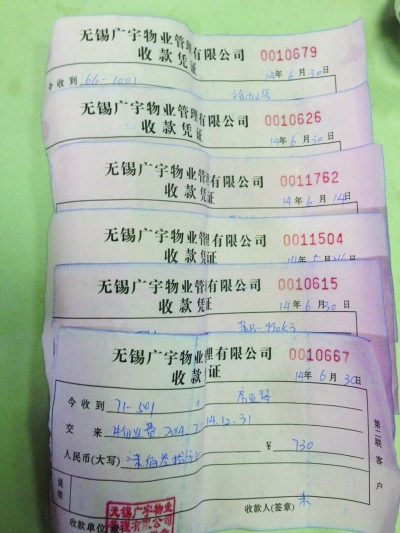 无锡广宇物业管理有限公司 0010679
收款凭证
14年6月30日
今收到 66-1001
无锡广宇物业管理有限公司 0010626
收款凭证
14年6月30日
无锡广宇物业管理有限公司 0011762
收款凭证
14年6月14日
无锡广宇物业管理有限公司 0011504
收款凭证
14年5月26日
无锡广宇物业管理有限公司 0010615
收款凭证
14年6月30日
无锡广宇物业管理有限公司 0010667
收款凭证
14年6月30日
今收到 71-501
交来 物业费 2014. 14.12.31
人民币(大写) 柒佰叁拾元 ¥ 730
说明
第二联客户
收款单位
收款人(签章) 朱
无锡广宇物业
管理有限公司